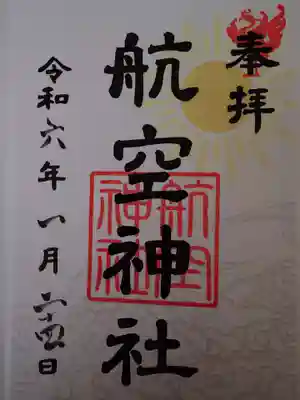 奉拝
航空神社
航空
神社
令和六年八月二十四日